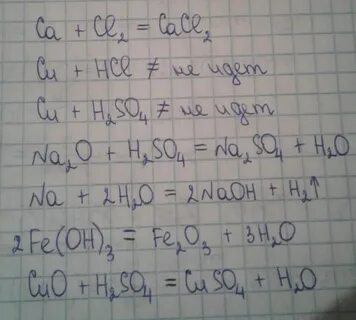 Ca + Cl₂ = CaCl₂
Cu + HCl ≠ не идет
Cu + H₂SO₄ ≠ не идет
Na₂O + H₂SO₄ = Na₂SO₄ + H₂O
Na + 2H₂O = 2NaOH + H₂↑
2Fe(OH)₃ = Fe₂O₃ + 3H₂O
CuO + H₂SO₄ = CuSO₄ + H₂O